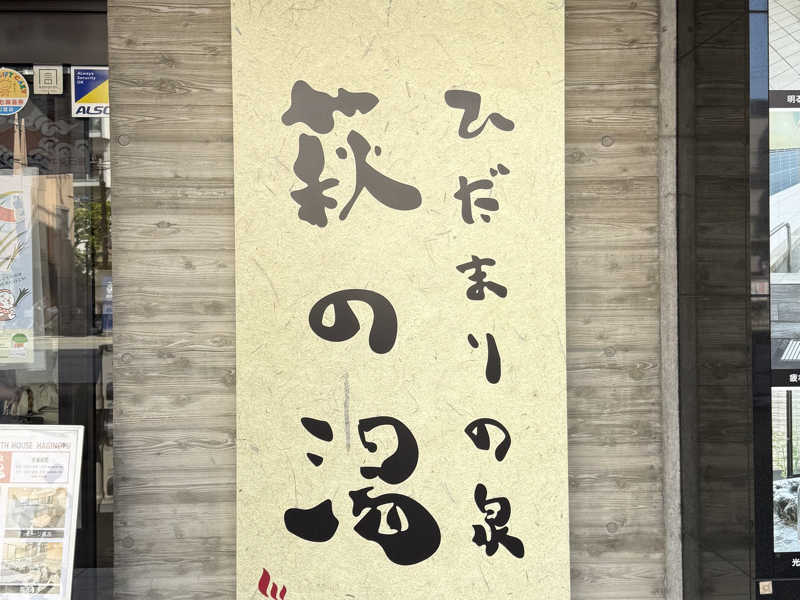 ひだまりの泉
萩の湯
Always
Security
OK
ALSO
TH HOUSE HAGINOYU
明る
疲れ
光